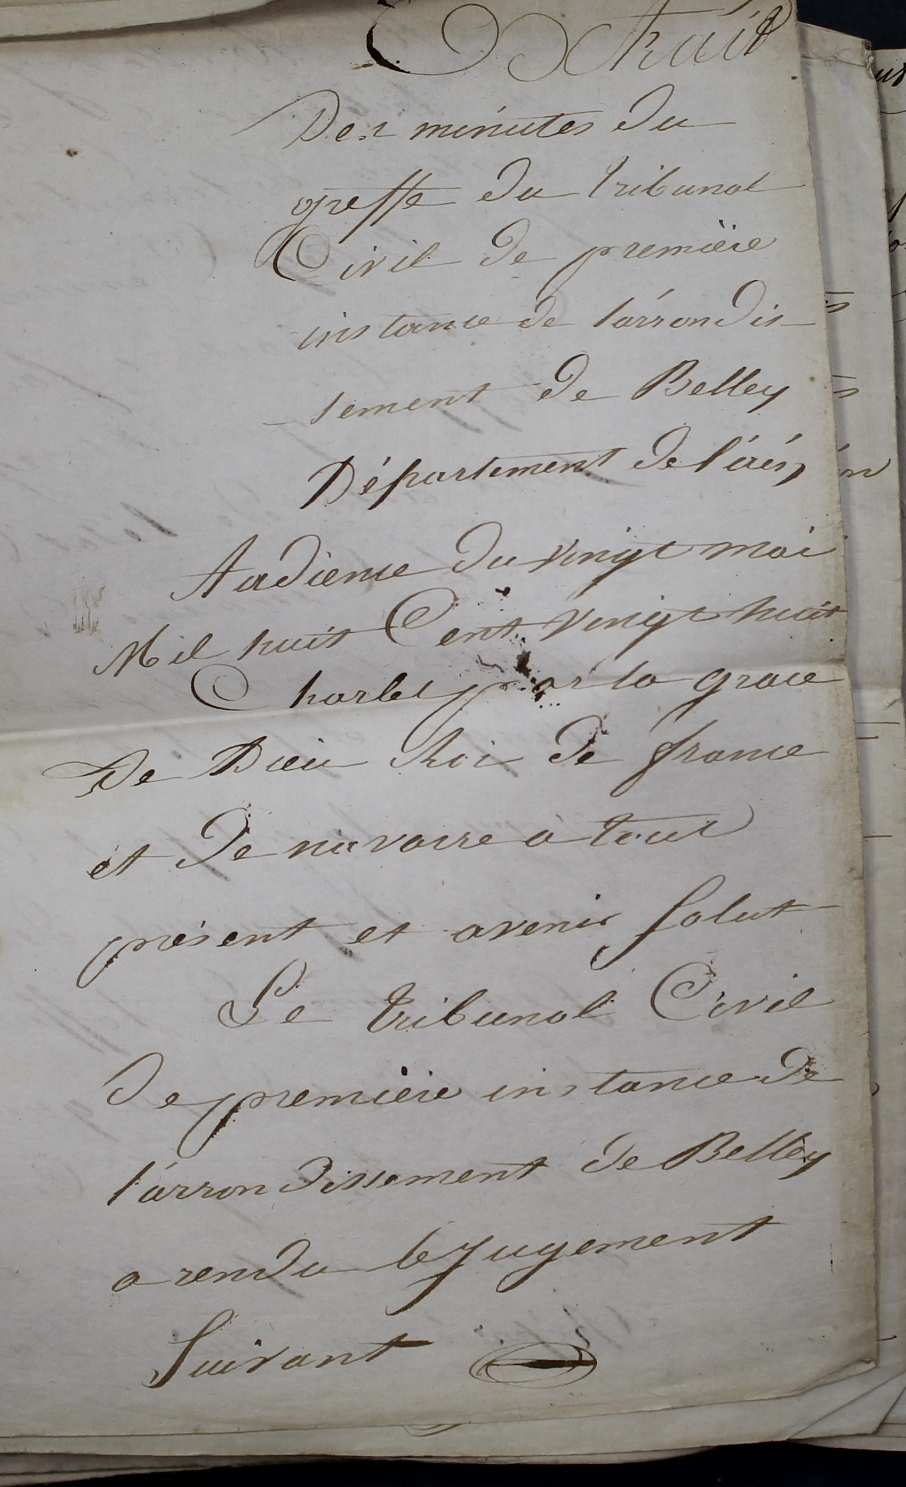 Extrait
Des minutes du
greffe du tribunal
Civil de première
instance de l'arrondis-
-sement de Belley
Département de l'ain
Audience du vingt mai
Mil huit Cent vingt huit
Charles par la grace
De Dieu Roi de france
et de navarre à tous
présent et avenir Salut
Le tribunal Civil
de première instance de
l'arrondissement de Belley
a rendu le jugement
Suivant